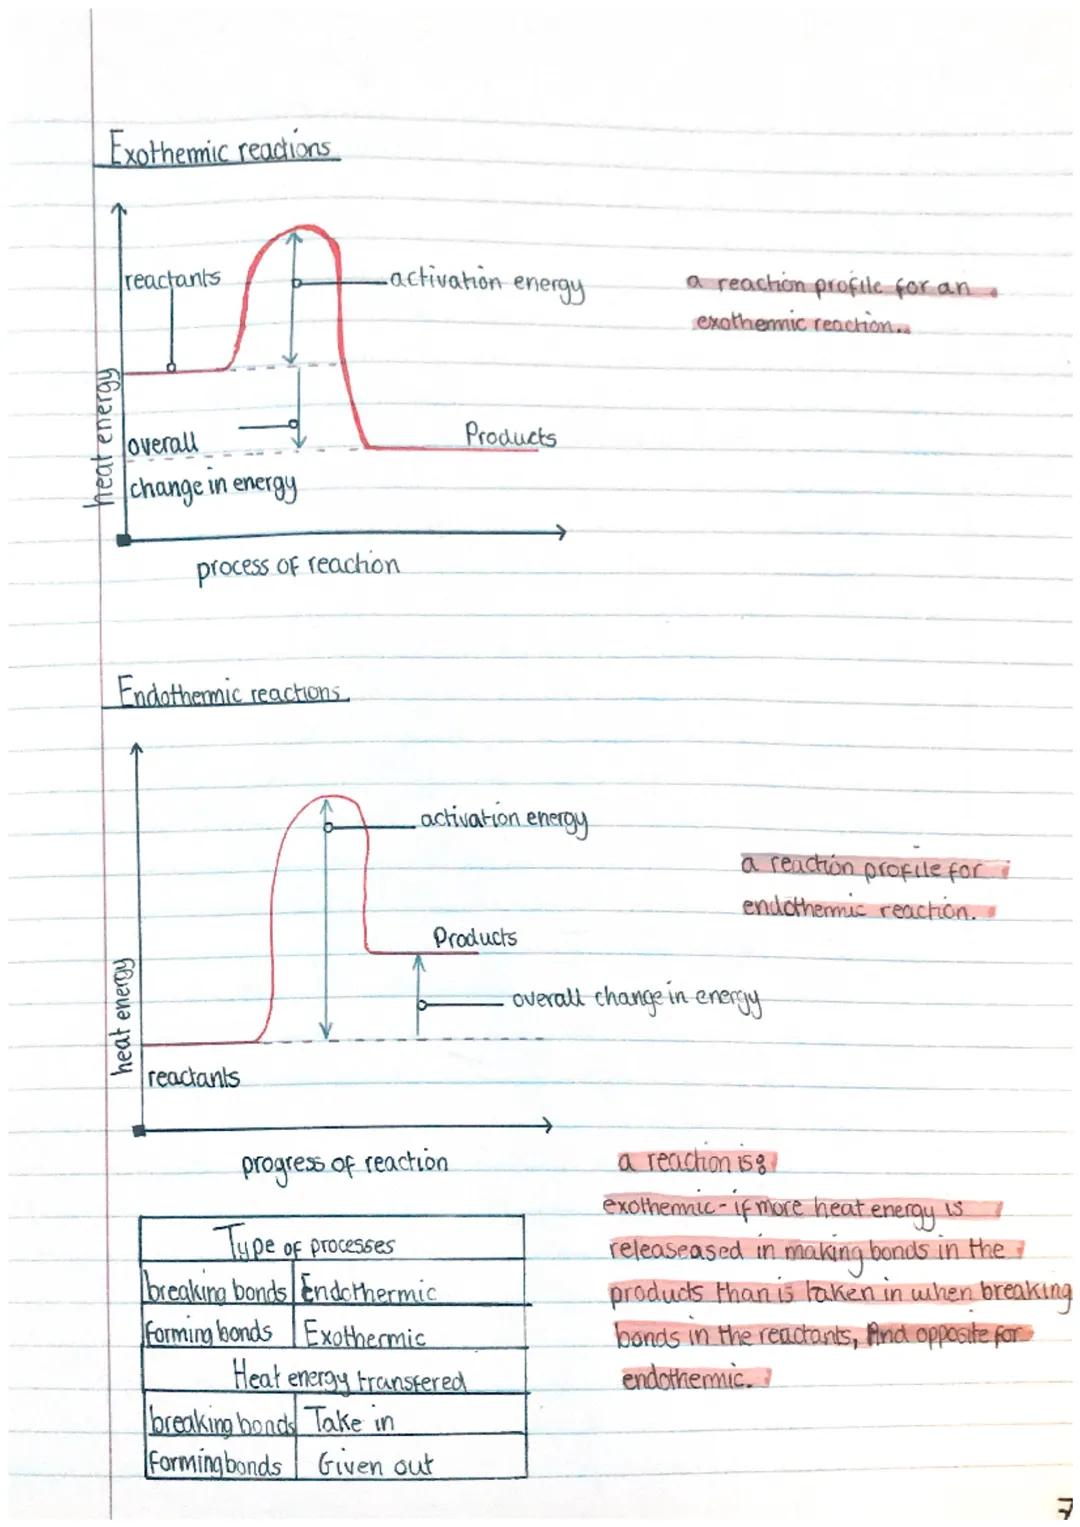 Exothemic reactions
reactants
activation energy
a reaction profile for an
exothermic reaction.
heat energy
overall
Products
change in energy
process of reaction
Endothermic reactions
activation energy
a reaction profile for
endothermic reaction.
Products
heat energy
overall change in energy
reactants
progress of reaction
a reaction is:
exothermic - if more heat energy is
releaseased in making bonds in the
products than is taken in when breaking
bonds in the reactants, And opposite for
endothermic.
Type of processes
breaking bonds Endothermic
forming bonds Exothermic
Heat energy transfered
breaking bonds Take in
Forming bonds Given out
7